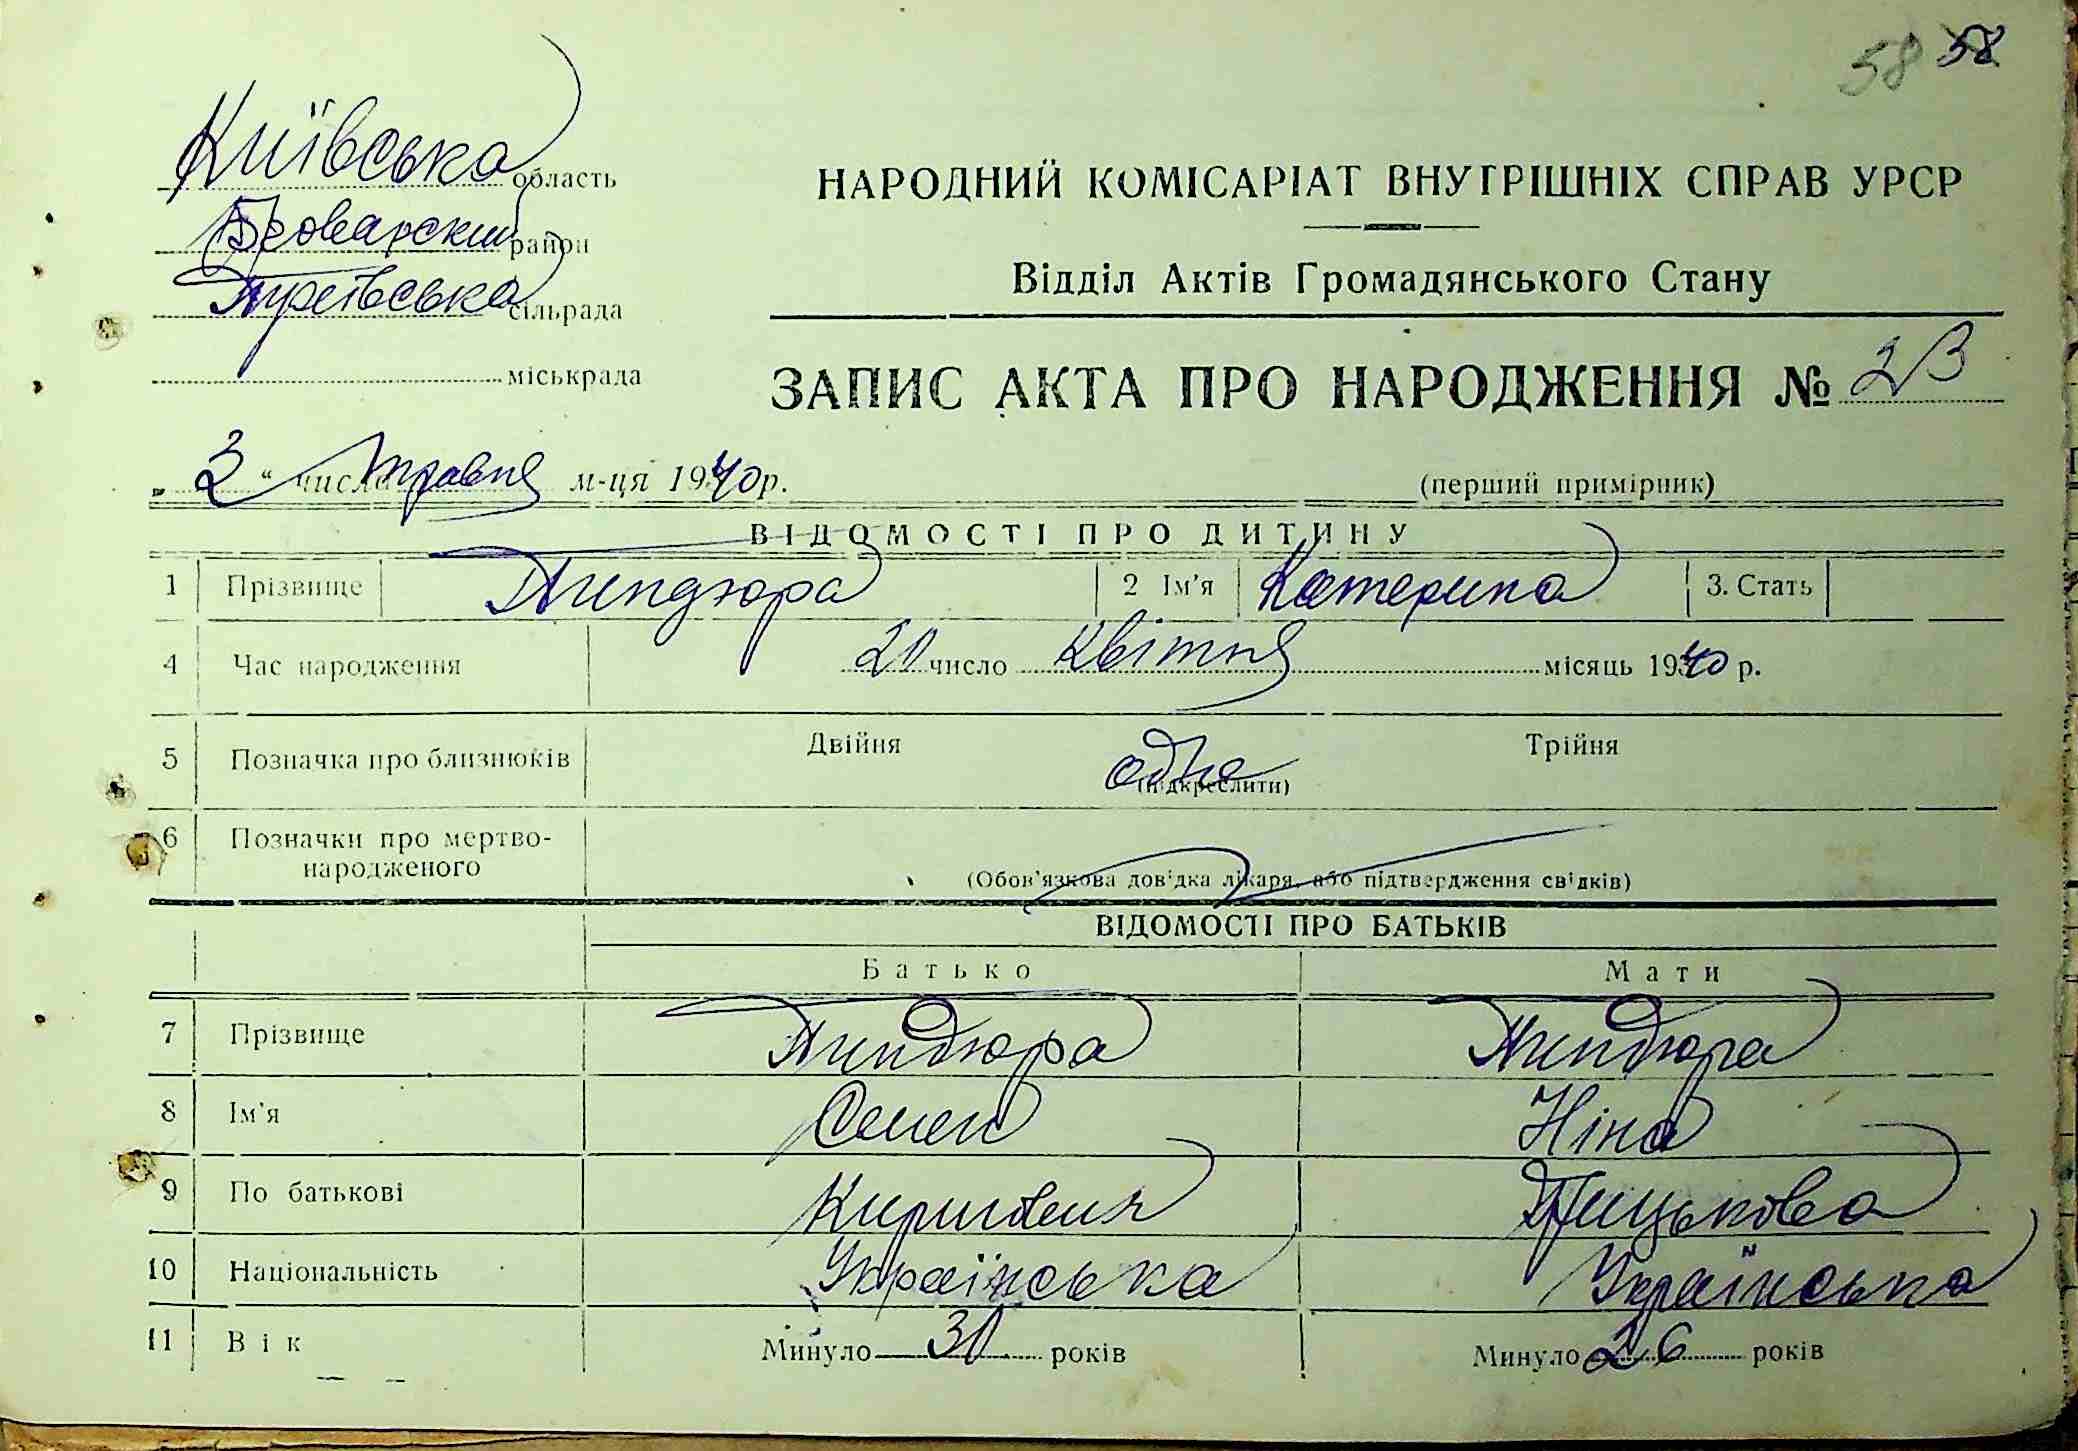 58 58
Київська область
Броварский район
Пухівська сільрада
міськрада
НАРОДНИЙ КОМІСАРІАТ ВНУТРІШНІХ СПРАВ УРСР
Відділ Актів Громадянського Стану
ЗАПИС АКТА ПРО НАРОДЖЕННЯ № 23
„ 3 “ числа травня м-ця 1940 р.
(перший примірник)
ВІДОМОСТІ ПРО ДИТИНУ
1 Прізвище Пиндюра 2 Ім'я Катерина 3. Стать
4 Час народження 20 число Квітня місяць 1940 р.
5 Позначка про близнюків Двійня одна Трійня
(підкреслити)
6 Позначки про мертво-
народженого
(Обов'язкова довідка лікаря, або підтвердження свідків)
ВІДОМОСТІ ПРО БАТЬКІВ
Батько Мати
7 Прізвище Пиндюра Пиндюра
8 Ім'я Семен Ніна
9 По батькові
10 Національність Українська Українська
11 Вік Минуло 30 років Минуло 26 років